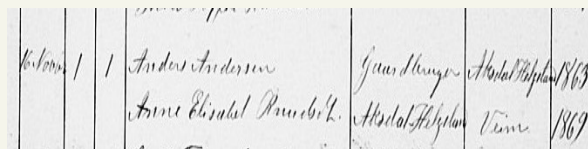 16 Novbr 1 1 Anders Andersen Gaardbruger Aksdal Helgeland 1863
Anne Elisabet Knudsd. Aksdal Helgeland Veim 1869